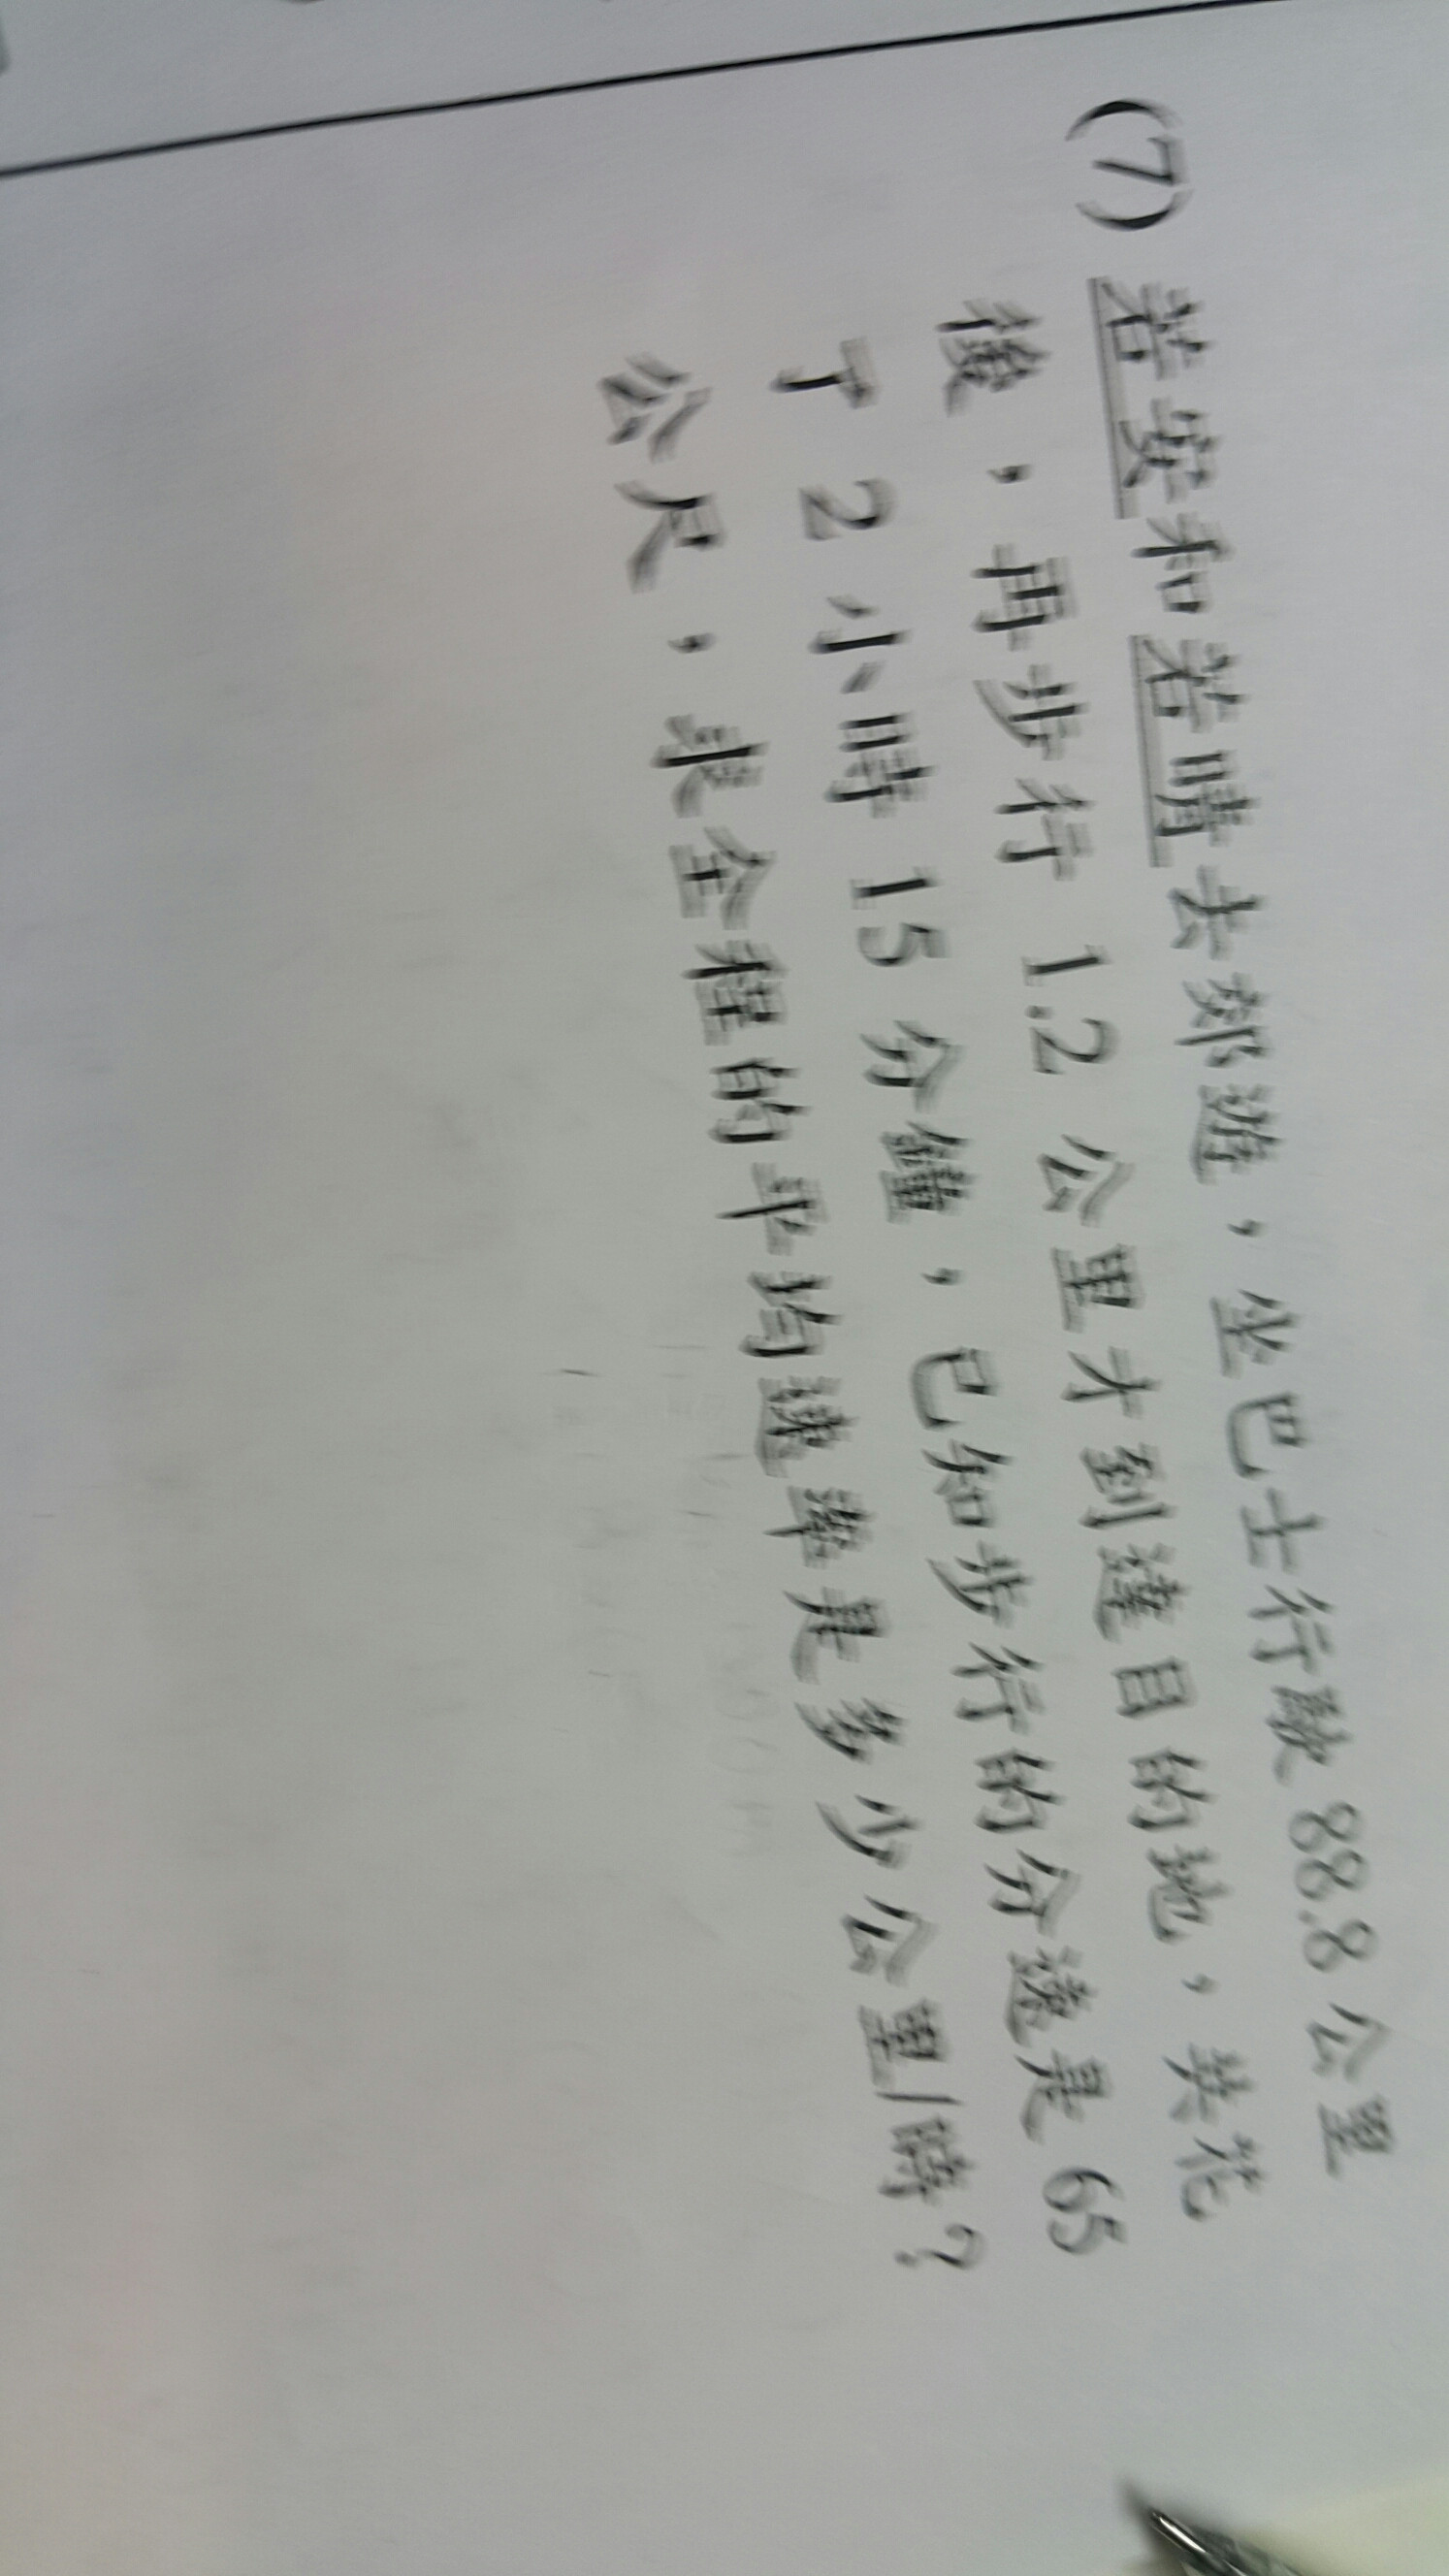 (7) 若安和若晴去郊遊，坐巴士行駛 88.8 公里
後，再步行 1.2 公里才到達目的地，共花
了 2 小時 15 分鐘，已知步行的分速是 65
公尺，求全程的平均速率是多少公里/時？